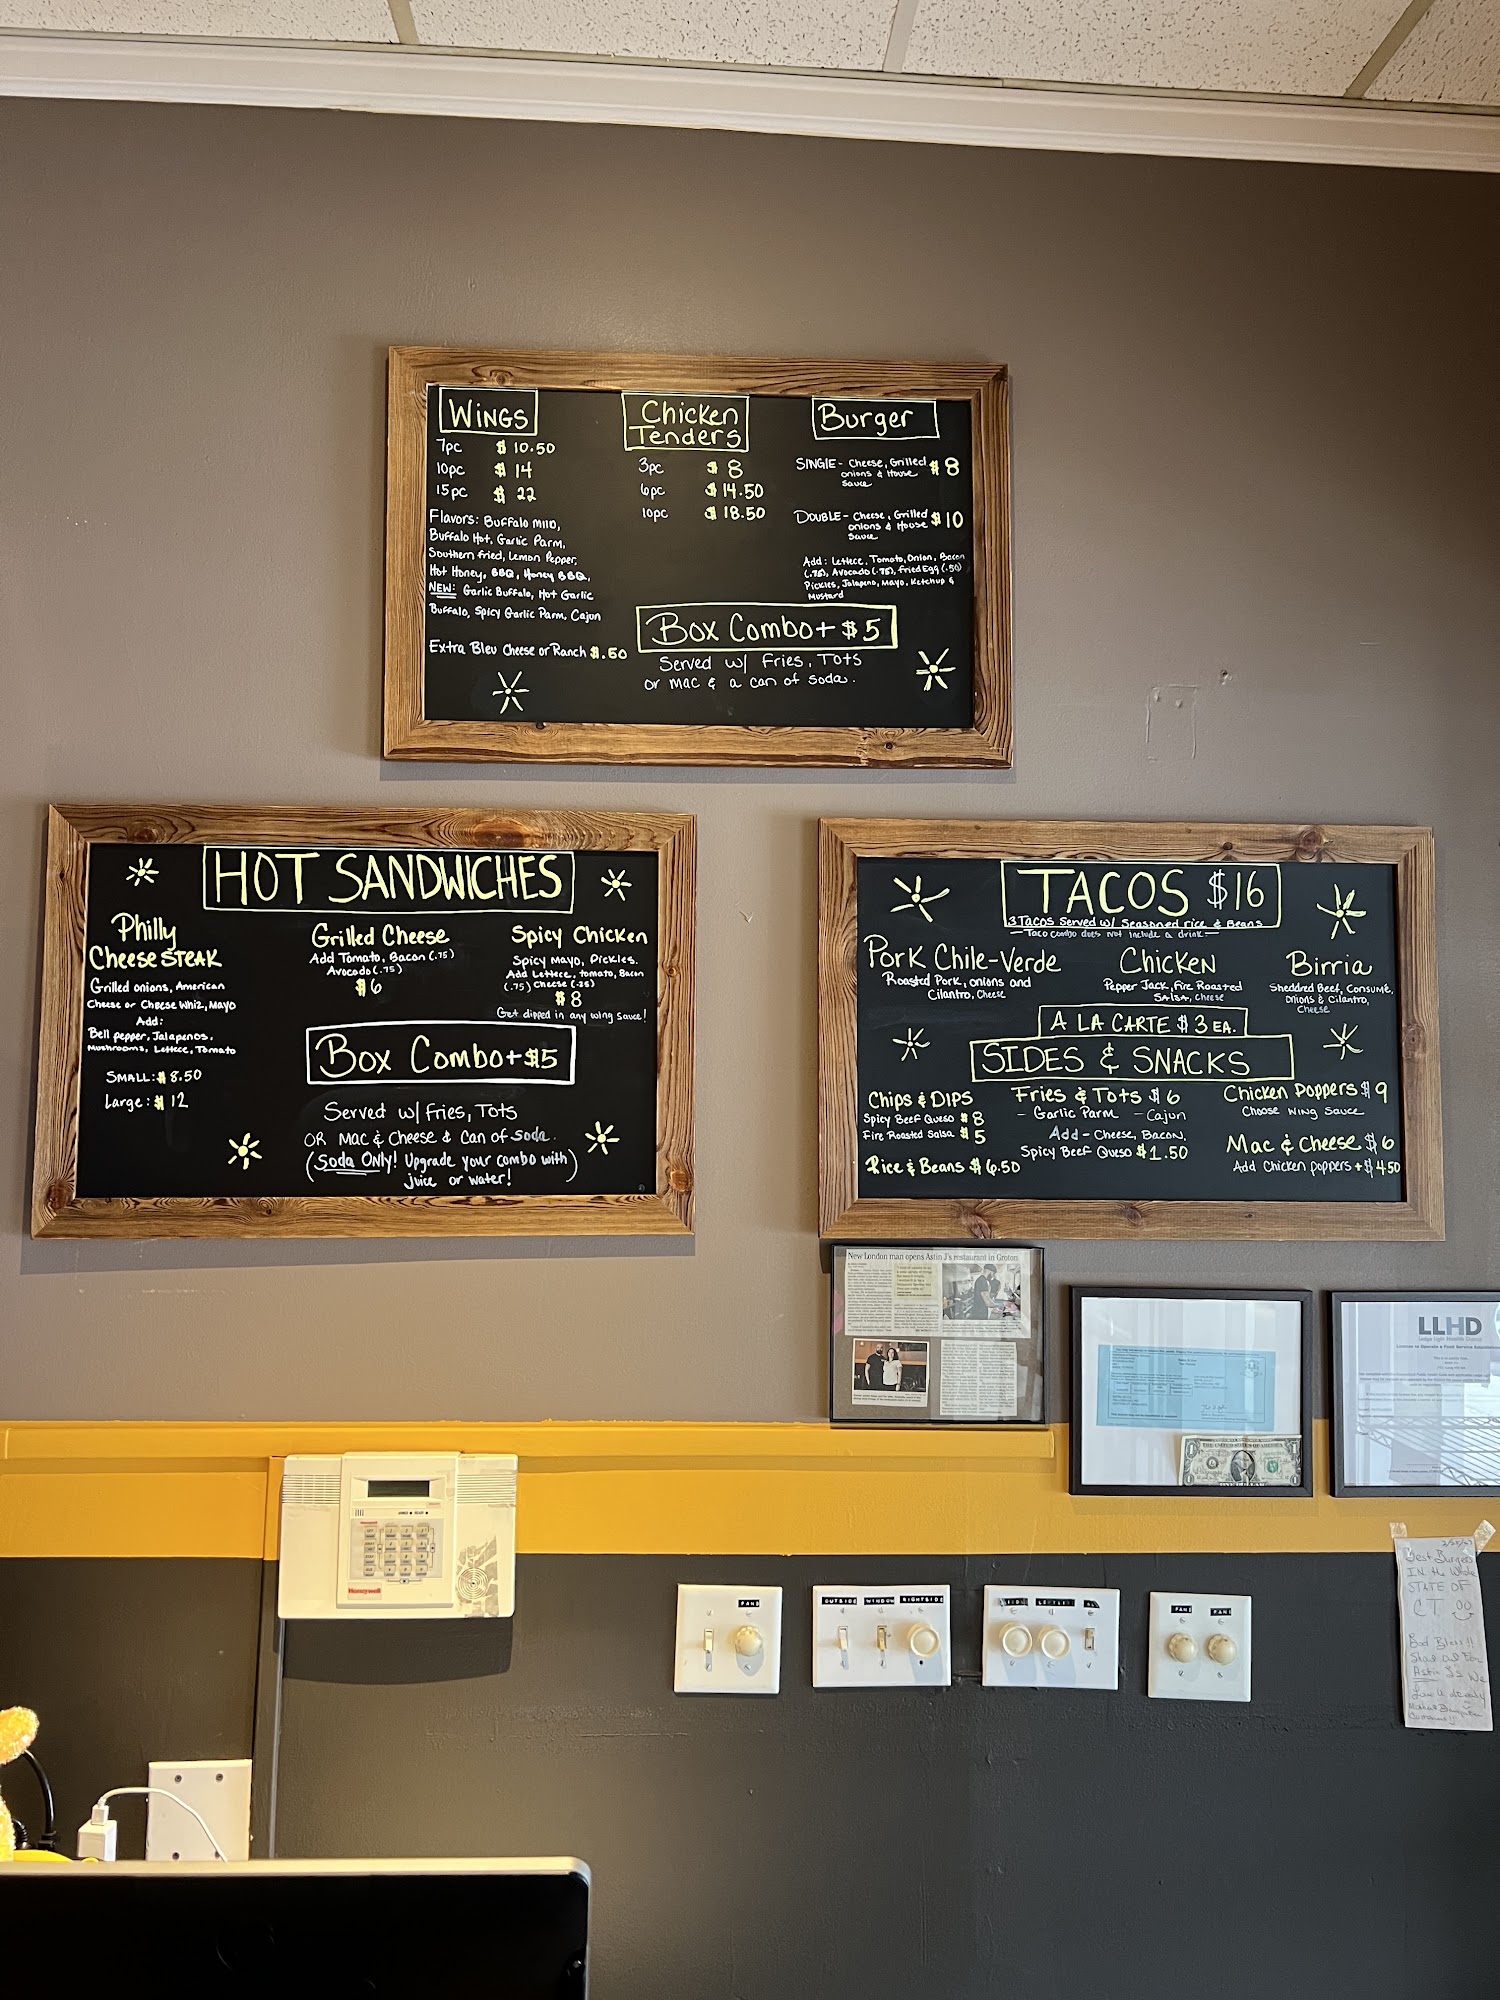 WINGS
7pc $10.50
10pc $14
15pc $22
Flavors: Buffalo Mild,
Buffalo Hot, Garlic Parm,
Southern fried, Lemon Pepper,
Hot Honey, BBQ, Honey BBQ,
NEW: Garlic Buffalo, Hot Garlic
Buffalo, Spicy Garlic Parm, Cajun
Extra Bleu Cheese or Ranch $.50
Chicken
Tenders
3pc $8
6pc $14.50
10pc $18.50
Burger
SINGlE - Cheese, Grilled $8
onions & House
Sauce
DOUBLE - Cheese, Grilled $10
onions & House
Sauce
Add: Lettece, Tomato, Onion, Bacon
(.75), Avocado (.75), Fried Egg (.50)
Pickles, Jalapeno, Mayo, Ketchup &
Mustard
Box Combo + $5
Served w/ Fries, Tots
or mac & a can of soda.
HOT SANDWICHES
Philly
Cheese STEAK
Grilled onions, American
Cheese or Cheese Whiz, Mayo
Add:
Bell pepper, Jalapenos,
Mushrooms, Lettece, Tomato
SMALL: $8.50
Large: $12
Grilled Cheese
Add Tomato, Bacon (.75)
Avocado (.75)
$6
Spicy Chicken
Spicy Mayo, Pickles.
Add Lettece, tomato, Bacon
(.75) Cheese (.25)
$8
Get dipped in any wing sauce!
Box Combo + $5
Served w/ Fries, Tots
OR Mac & Cheese & Can of Soda.
(Soda ONLY! Upgrade your combo with)
juice or water!
TACOS $16
3 TACOS Served w/ Seasoned rice & Beans
- Taco combo does not include a drink -
Pork Chile-Verde
Roasted Pork, onions and
Cilantro, Cheese
Chicken
Pepper Jack, Fire Roasted
SALSA, Cheese
Birria
Shedded Beef, Consume,
Onions & Cilantro,
Cheese
A LA CARTE $3 EA.
SIDES & SNACKS
Chips & DIPS
Spicy Beef Queso $8
Fire Roasted Salsa $5
Rice & Beans $6.50
Fries & Tots $6
- Garlic Parm - Cajun
Add - Cheese, Bacon,
Spicy Beef Queso $1.50
Chicken Poppers $9
Choose Wing Sauce
Mac & Cheese $6
Add Chicken poppers + $4.50
New London man opens Astin J's restaurant in Groton
LLHD
Ledge Light Health District
License to Operate a Food Service Establishment
THE UNITED STATES OF AMERICA
Honeywell
FANS
OUTSIDE WINDOW RIGHTSIDE
FANS FANS
Best Burgers
IN the whole
STATE OF
CT
God Bless!!